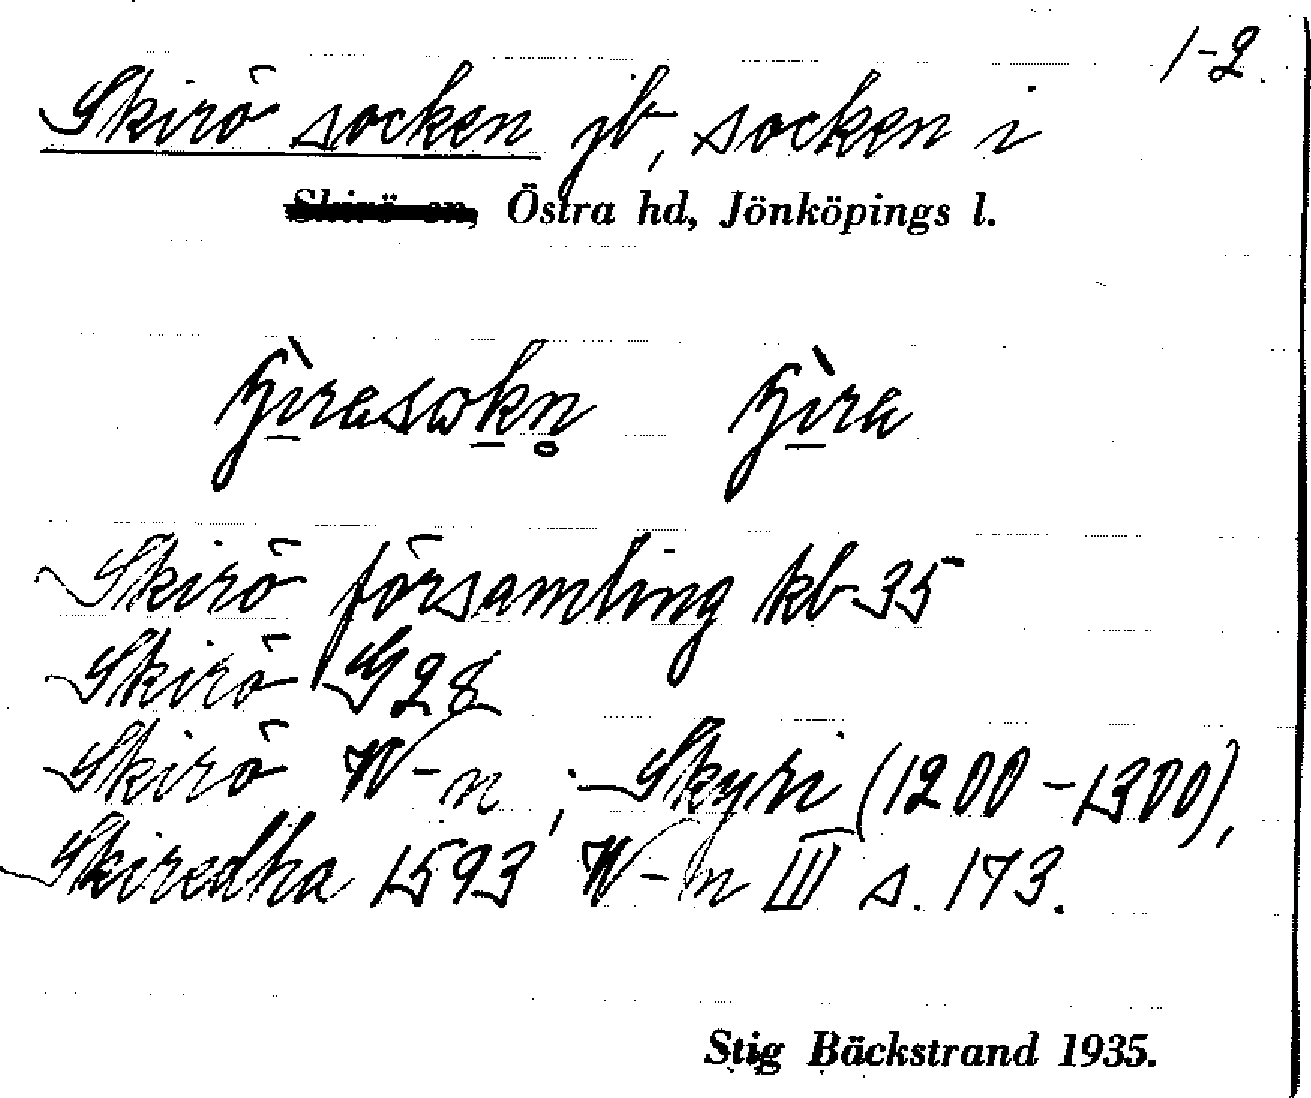 1-2.
Skirö socken jb, socken i
Skirö sn, Östra hd, Jönköpings l.
Skirö församling kb 35
Skirö G 28
Skirö W-n; Skyri (1200-1300),
Skiredha 1593 W-n III s. 173.
Stig Bäckstrand 1935.